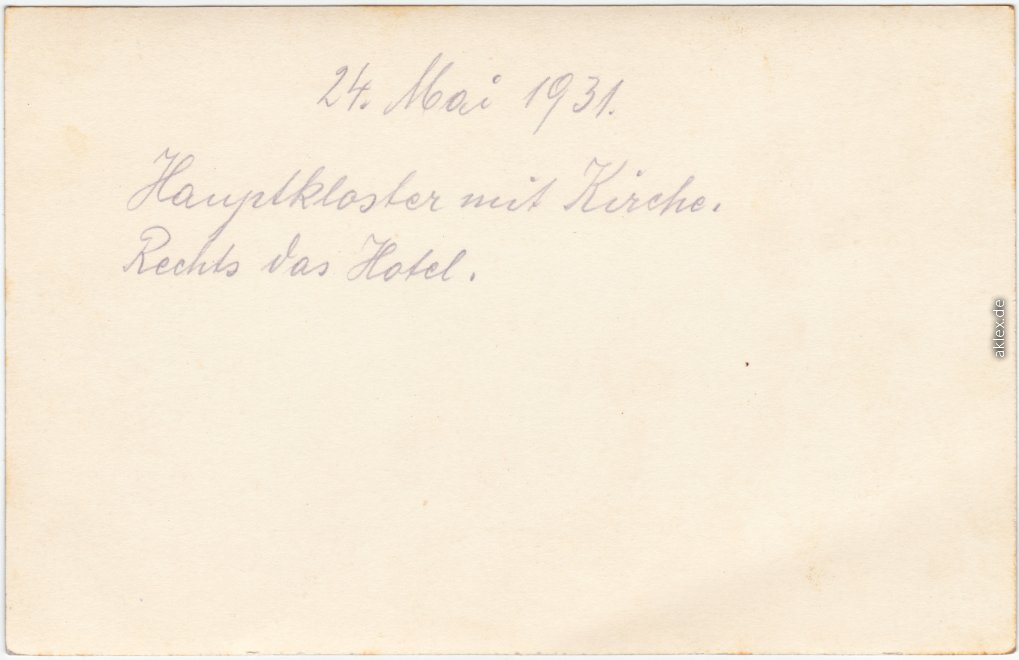 24. Mai 1931.
Hauptkloster mit Kirche.
Rechts das Hotel.
aklex.de